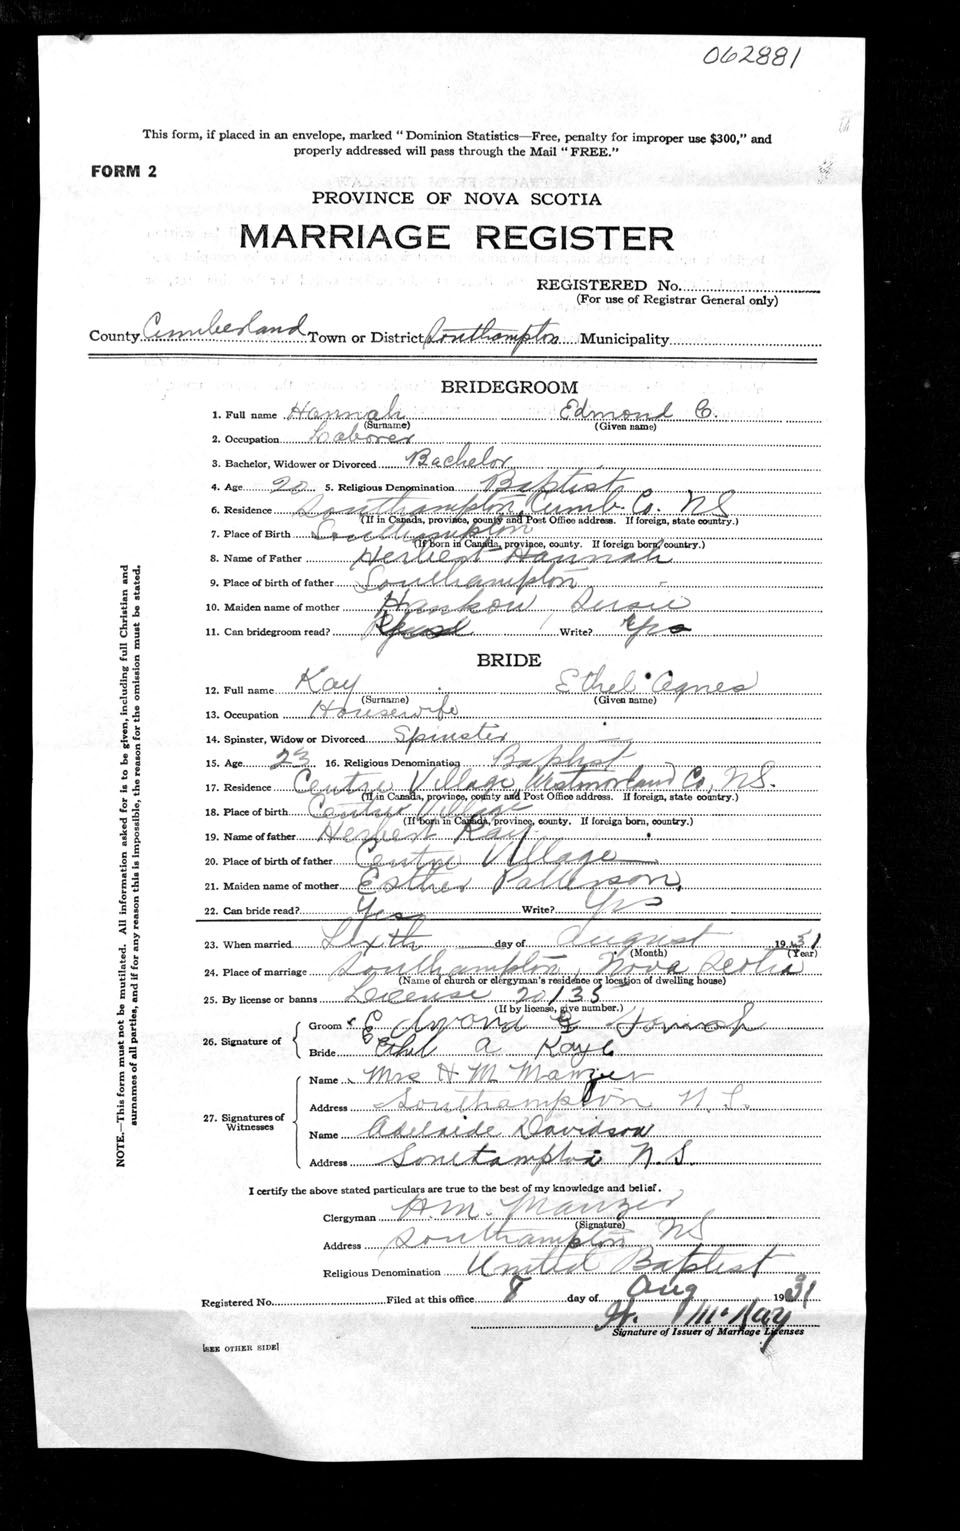 062881
This form, if placed in an envelope, marked "Dominion Statistics—Free, penalty for improper use $300," and
properly addressed will pass through the Mail "FREE."
FORM 2
PROVINCE OF NOVA SCOTIA
MARRIAGE REGISTER
REGISTERED No.
(For use of Registrar General only)
County Cumberland Town or District Southampton Municipality
BRIDEGROOM
1. Full name Hannah Edmond C.
(Surname) (Given name)
2. Occupation Laborer
3. Bachelor, Widower or Divorced Bachelor
4. Age 20 5. Religious Denomination Baptist
6. Residence Southampton, Cumb. Co. NS
(If in Canada, province, county and Post Office address. If foreign, state country.)
7. Place of Birth Southampton
(If born in Canada, province, county. If foreign born, country.)
8. Name of Father Herbert Hannah
9. Place of birth of father Southampton
10. Maiden name of mother
11. Can bridegroom read? Write? Yes
BRIDE
12. Full name Kay Ethel Agnes
(Surname) (Given name)
13. Occupation Housewife
14. Spinster, Widow or Divorced Spinster
15. Age 23 16. Religious Denomination Baptist
17. Residence Centre Village Westmorland Co, NS.
(If in Canada, province, county and Post Office address. If foreign, state country.)
18. Place of birth Centre Village
(If born in Canada, province, county. If foreign born, country.)
19. Name of father Herbert Kay
20. Place of birth of father Centre Village
21. Maiden name of mother Esther Patterson,
22. Can bride read? Yes Write? Yes
23. When married Sixth day of August 1931
(Month) (Year)
24. Place of marriage Southampton, Nova Scotia
(Name of church or clergyman's residence or location of dwelling house)
25. By license or banns License 20135
(If by license, give number.)
26. Signature of
Groom Edmond
Bride Ethel A Kaye
27. Signatures of Witnesses
Name Mrs H M Manzer
Address Southampton N.S.
Name Adelaide Davidson
Address Southampton N.S.
I certify the above stated particulars are true to the best of my knowledge and belief.
Clergyman H.M. Manzer
(Signature)
Address Southampton NS
Religious Denomination United Baptist
Registered No. Filed at this office 8 day of Aug 1931
H. McKay
Signature of Issuer of Marriage Licenses
[SEE OTHER SIDE]
NOTE.—This form must not be mutilated. All information asked for is to be given, including full Christian and
surnames of all parties, and if for any reason this is impossible, the reason for the omission must be stated.